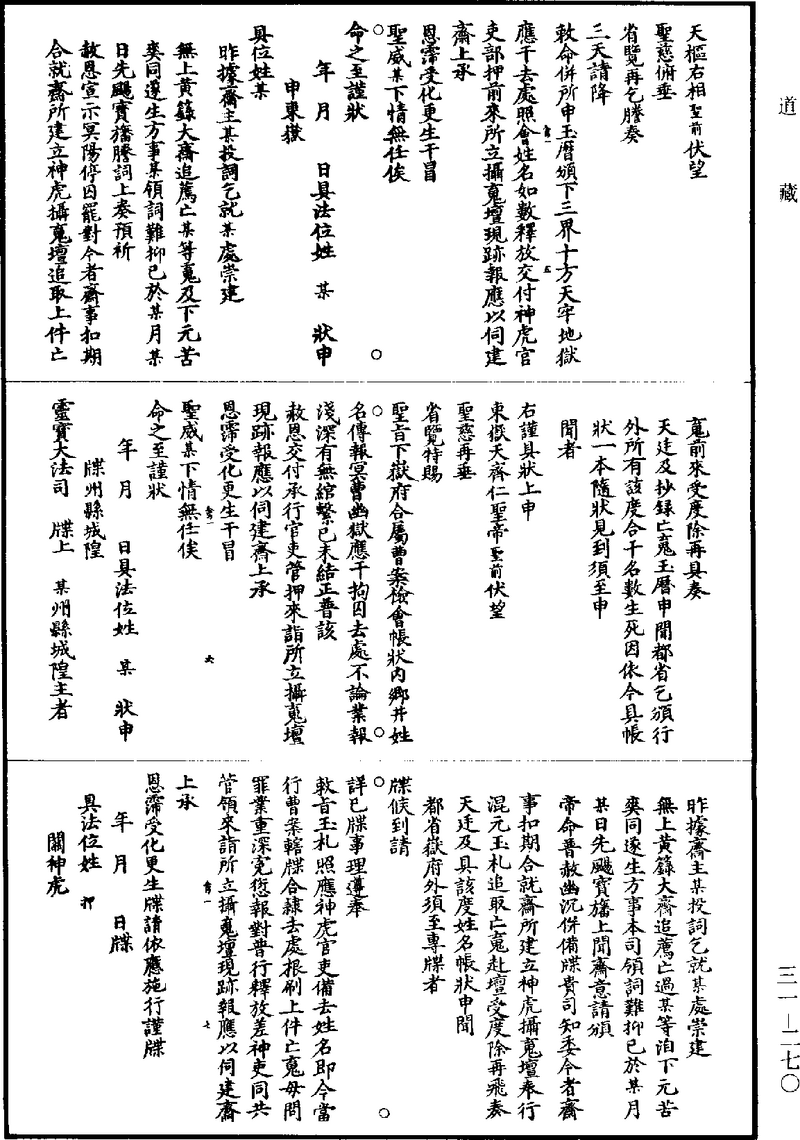 道藏
天樞右相聖前伏望
聖慈俯垂
省覽再乞謄奏
三天請降
敕命併所申玉曆頒下三界十方天牢地獄
應干去處照會姓名如數釋放交付神虎官
吏部押前來所立攝䰟壇現跡報應以伺建
齋上承
恩霈受化更生干冒
聖威某下情無任俟
命之至謹狀
年月日具法位姓某狀申
申東嶽
具位姓某
昨據齋主某投詞乞就某處崇建
無上黃籙大齋追薦亡某等䰟及下元苦
爽同遂生方事某領詞難抑已於某月某
日先颺寶旛謄詞上奏預祈
赦恩宣示冥陽停囚罷對今者齋事扣期
合就齋所建立神虎攝䰟壇追取上件亡
䰟前來受度除再具奏
天廷及抄錄亡䰟玉曆申聞都省乞頒行
外所有該度合干名數生死因依今具帳
狀一本隨狀見到須至申
聞者
右謹具狀上申
東嶽天齊仁聖帝聖前伏望
聖慈再垂
省覽特賜
聖旨下獄府合屬曹案檢會帳狀內鄉井姓
名傳報冥曹幽獄應干拘囚去處不論業報
淺深有無綰繫已未結正普該
赦恩交付承行官吏管押來詣所立攝䰟壇
現跡報應以伺建齋上承
恩霈受化更生干冒
聖威某下情無任俟
命之至謹狀
年月日具法位姓某狀申
牒州縣城隍
靈寶大法司牒上某州縣城隍主者
昨據齋主某投詞乞就某處崇建
無上黃籙大齋追薦亡過某等洎下元苦
爽同遂生方事本司領詞難抑已於某月
某日先颺寶旛上聞齋意請頒
帝命普赦幽沉併備牒貴司知委今者齋
事扣期合就齋所建立神虎攝䰟壇奉行
混元玉札追取亡䰟赴壇受度除再飛奏
天廷及具該度姓名帳狀申聞
都省嶽府外須至專牒者
牒候到請
詳已牒事理遵奉
敕旨玉札照應神虎官吏備去姓名即今當
行曹案轄牒合隸去處根刷上件亡䰟毋問
罪業重深冤愆報對普行釋放差神吏同共
管領來詣所立攝䰟壇現跡報應以伺建齋
上承
恩霈受化更生牒請依應施行謹牒
年月日牒
具法位姓押
關神虎
三一—二七〇